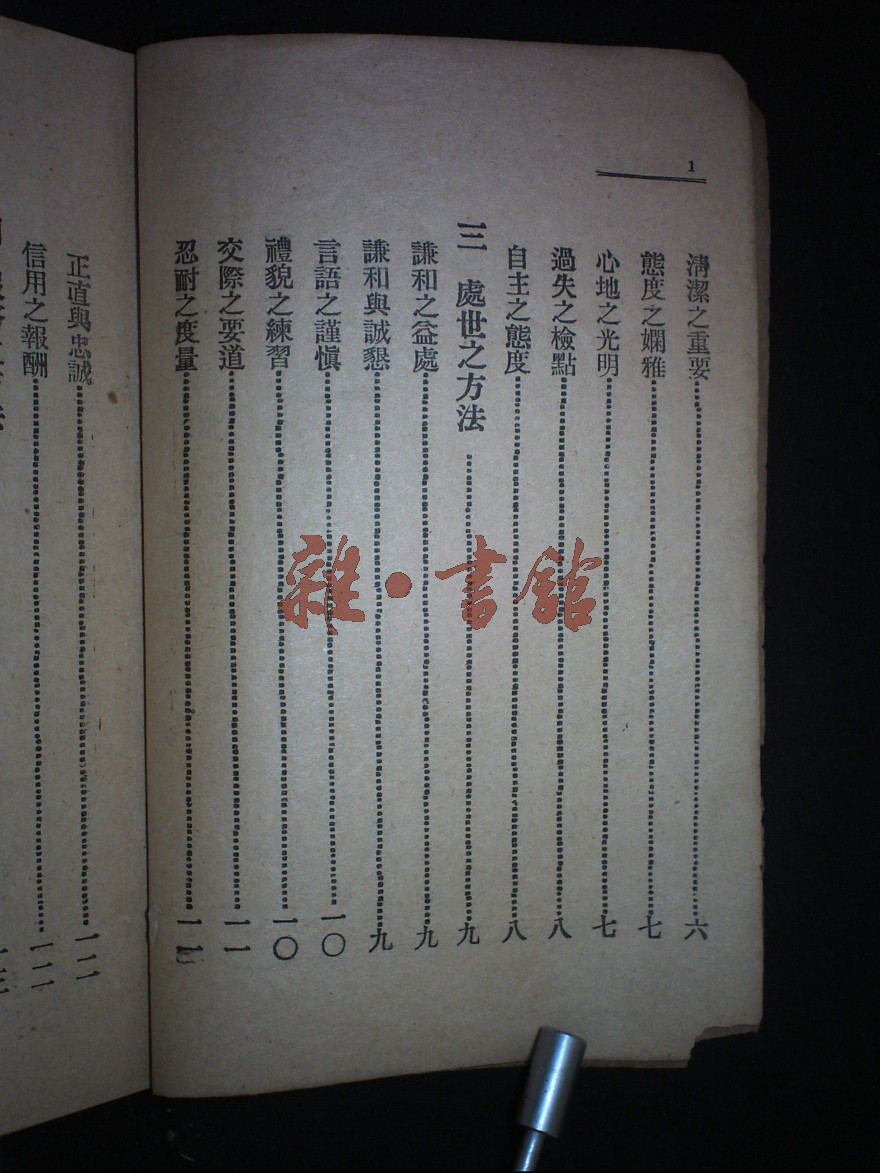 1
清潔之重要六
態度之嫻雅七
心地之光明七
過失之檢點八
自主之態度八
三 處世之方法九
謙和之益處九
謙和與誠懇九
言語之謹慎一〇
禮貌之練習一〇
交際之要道一一
忍耐之度量一一
正直與忠誠一二
信用之報酬一二
雜·書館